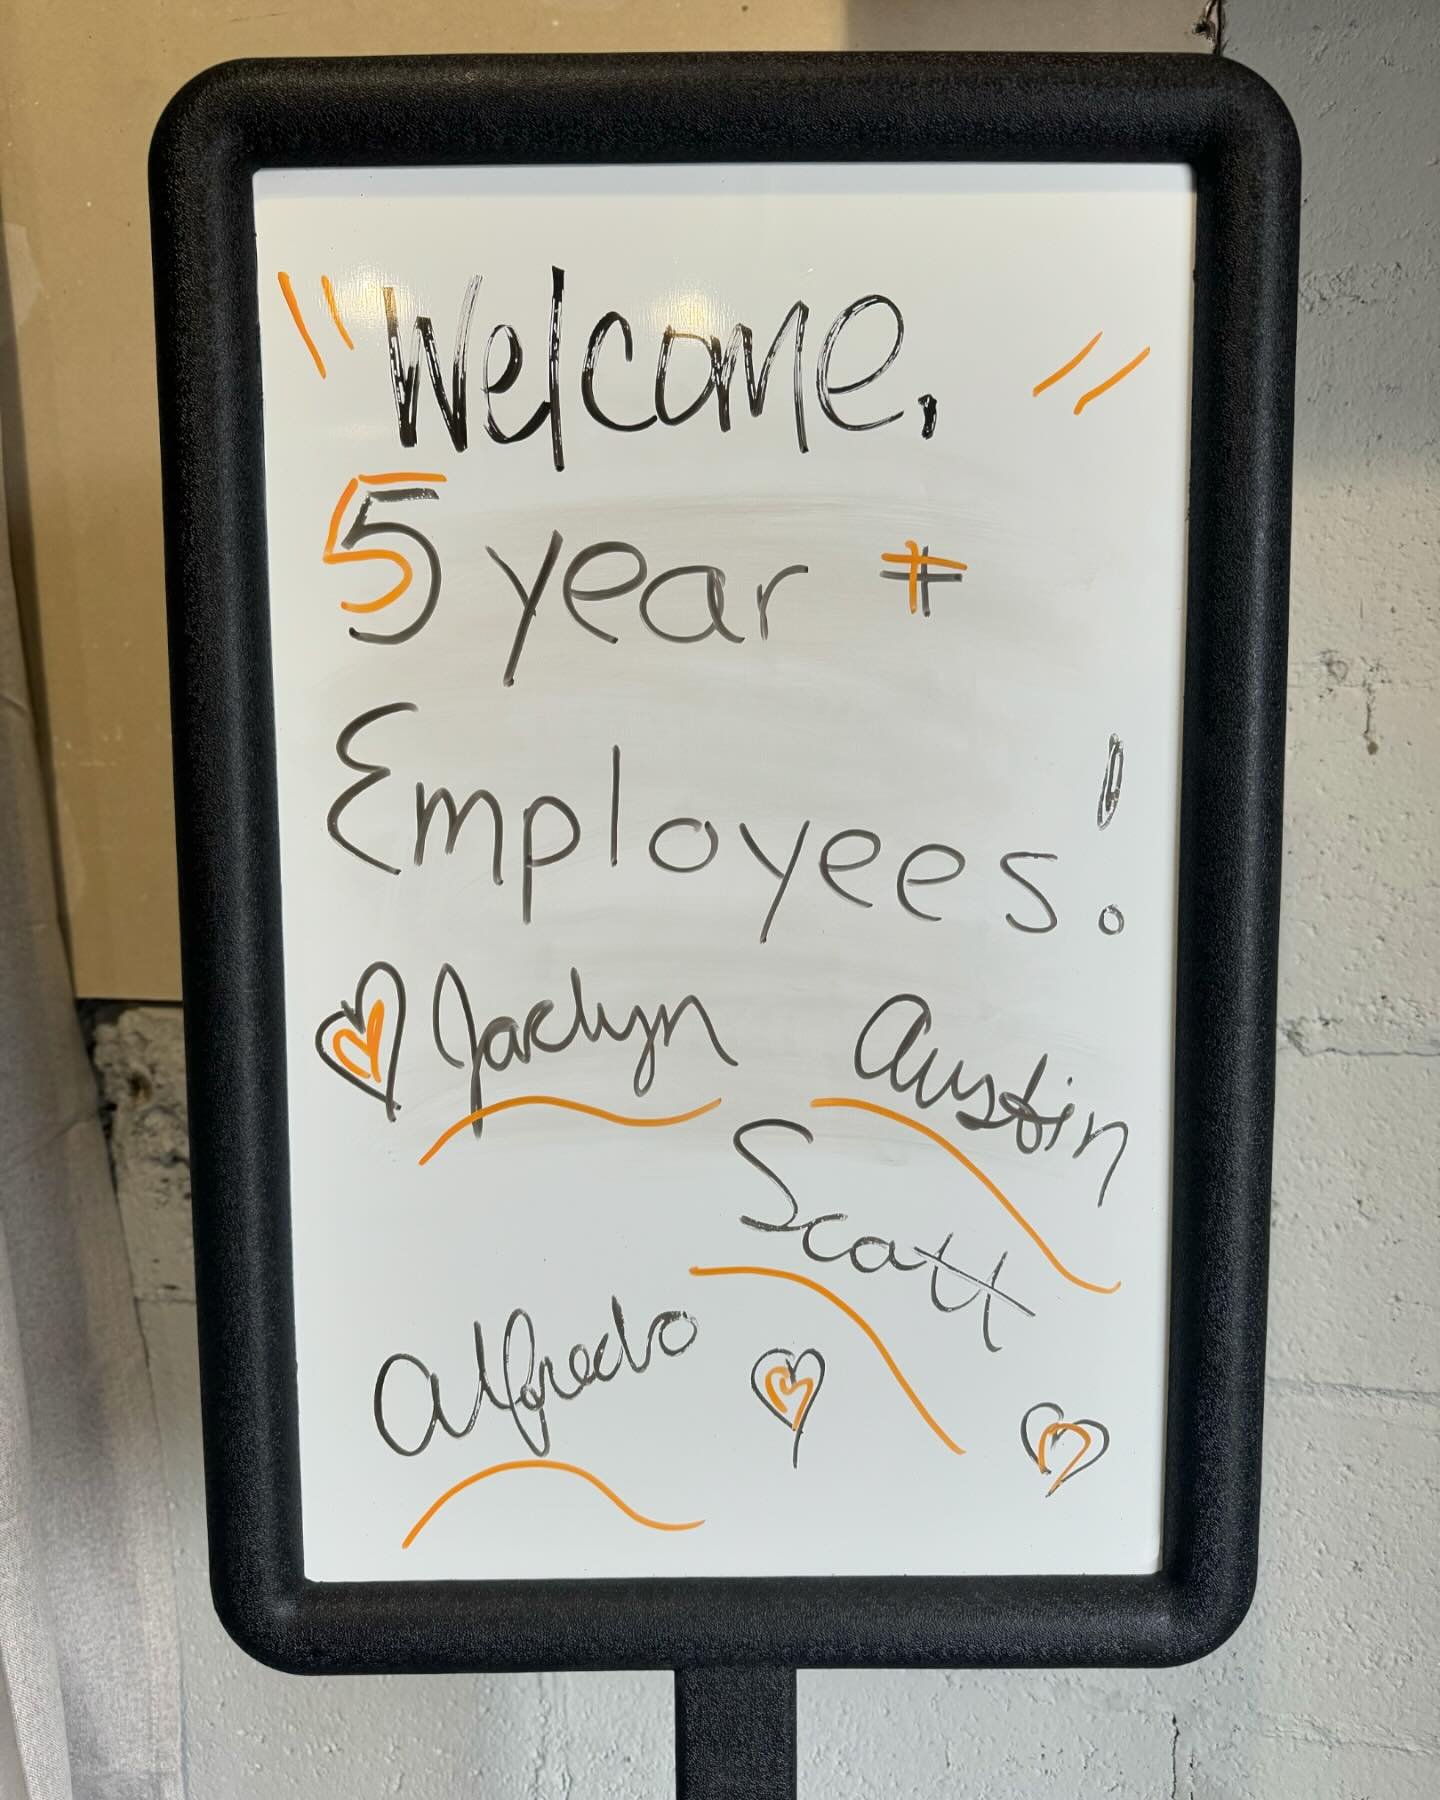 Welcome,
5 year +
Employees!
Jaclyn
Austin
Scott
Alfredo